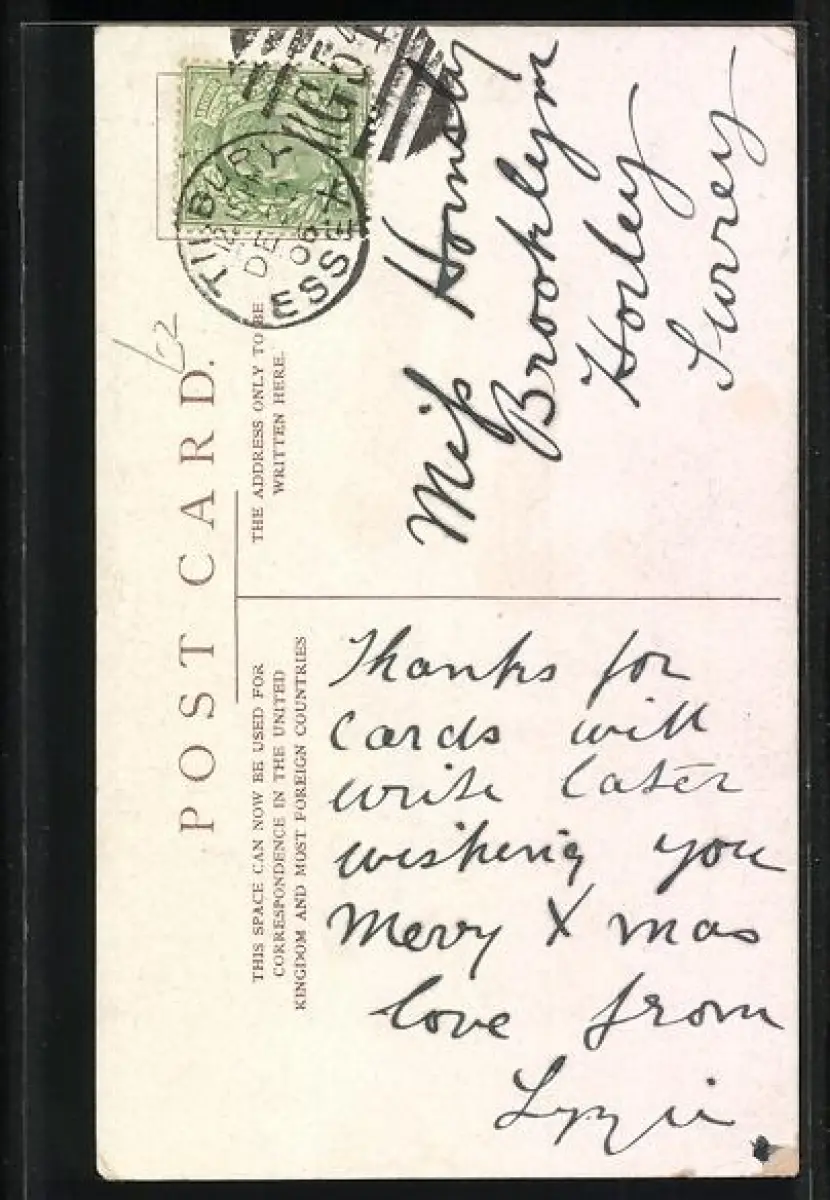 POST CARD.
THIS SPACE CAN NOW BE USED FOR
CORRESPONDENCE IN THE UNITED
KINGDOM AND MOST FOREIGN COUNTRIES
THE ADDRESS ONLY TO BE
WRITTEN HERE.
TILBURY
DE
06
ESSEX
Thanks for
cards will
write later
wishing you
Merry Xmas
love from
Lyzzie
Miss Hornsby
Brooklyn
Horley
Surrey